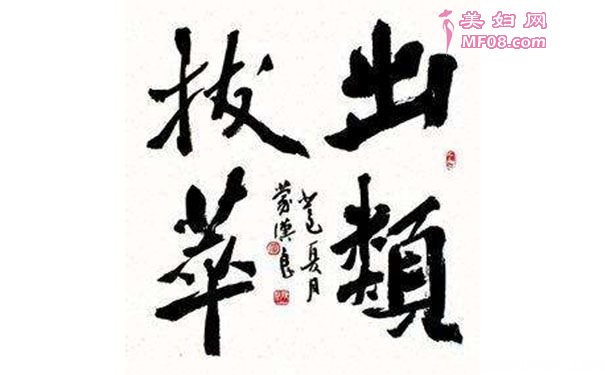 美妇网
MF08.com
出類
拔萃
夏月
蒙漢良